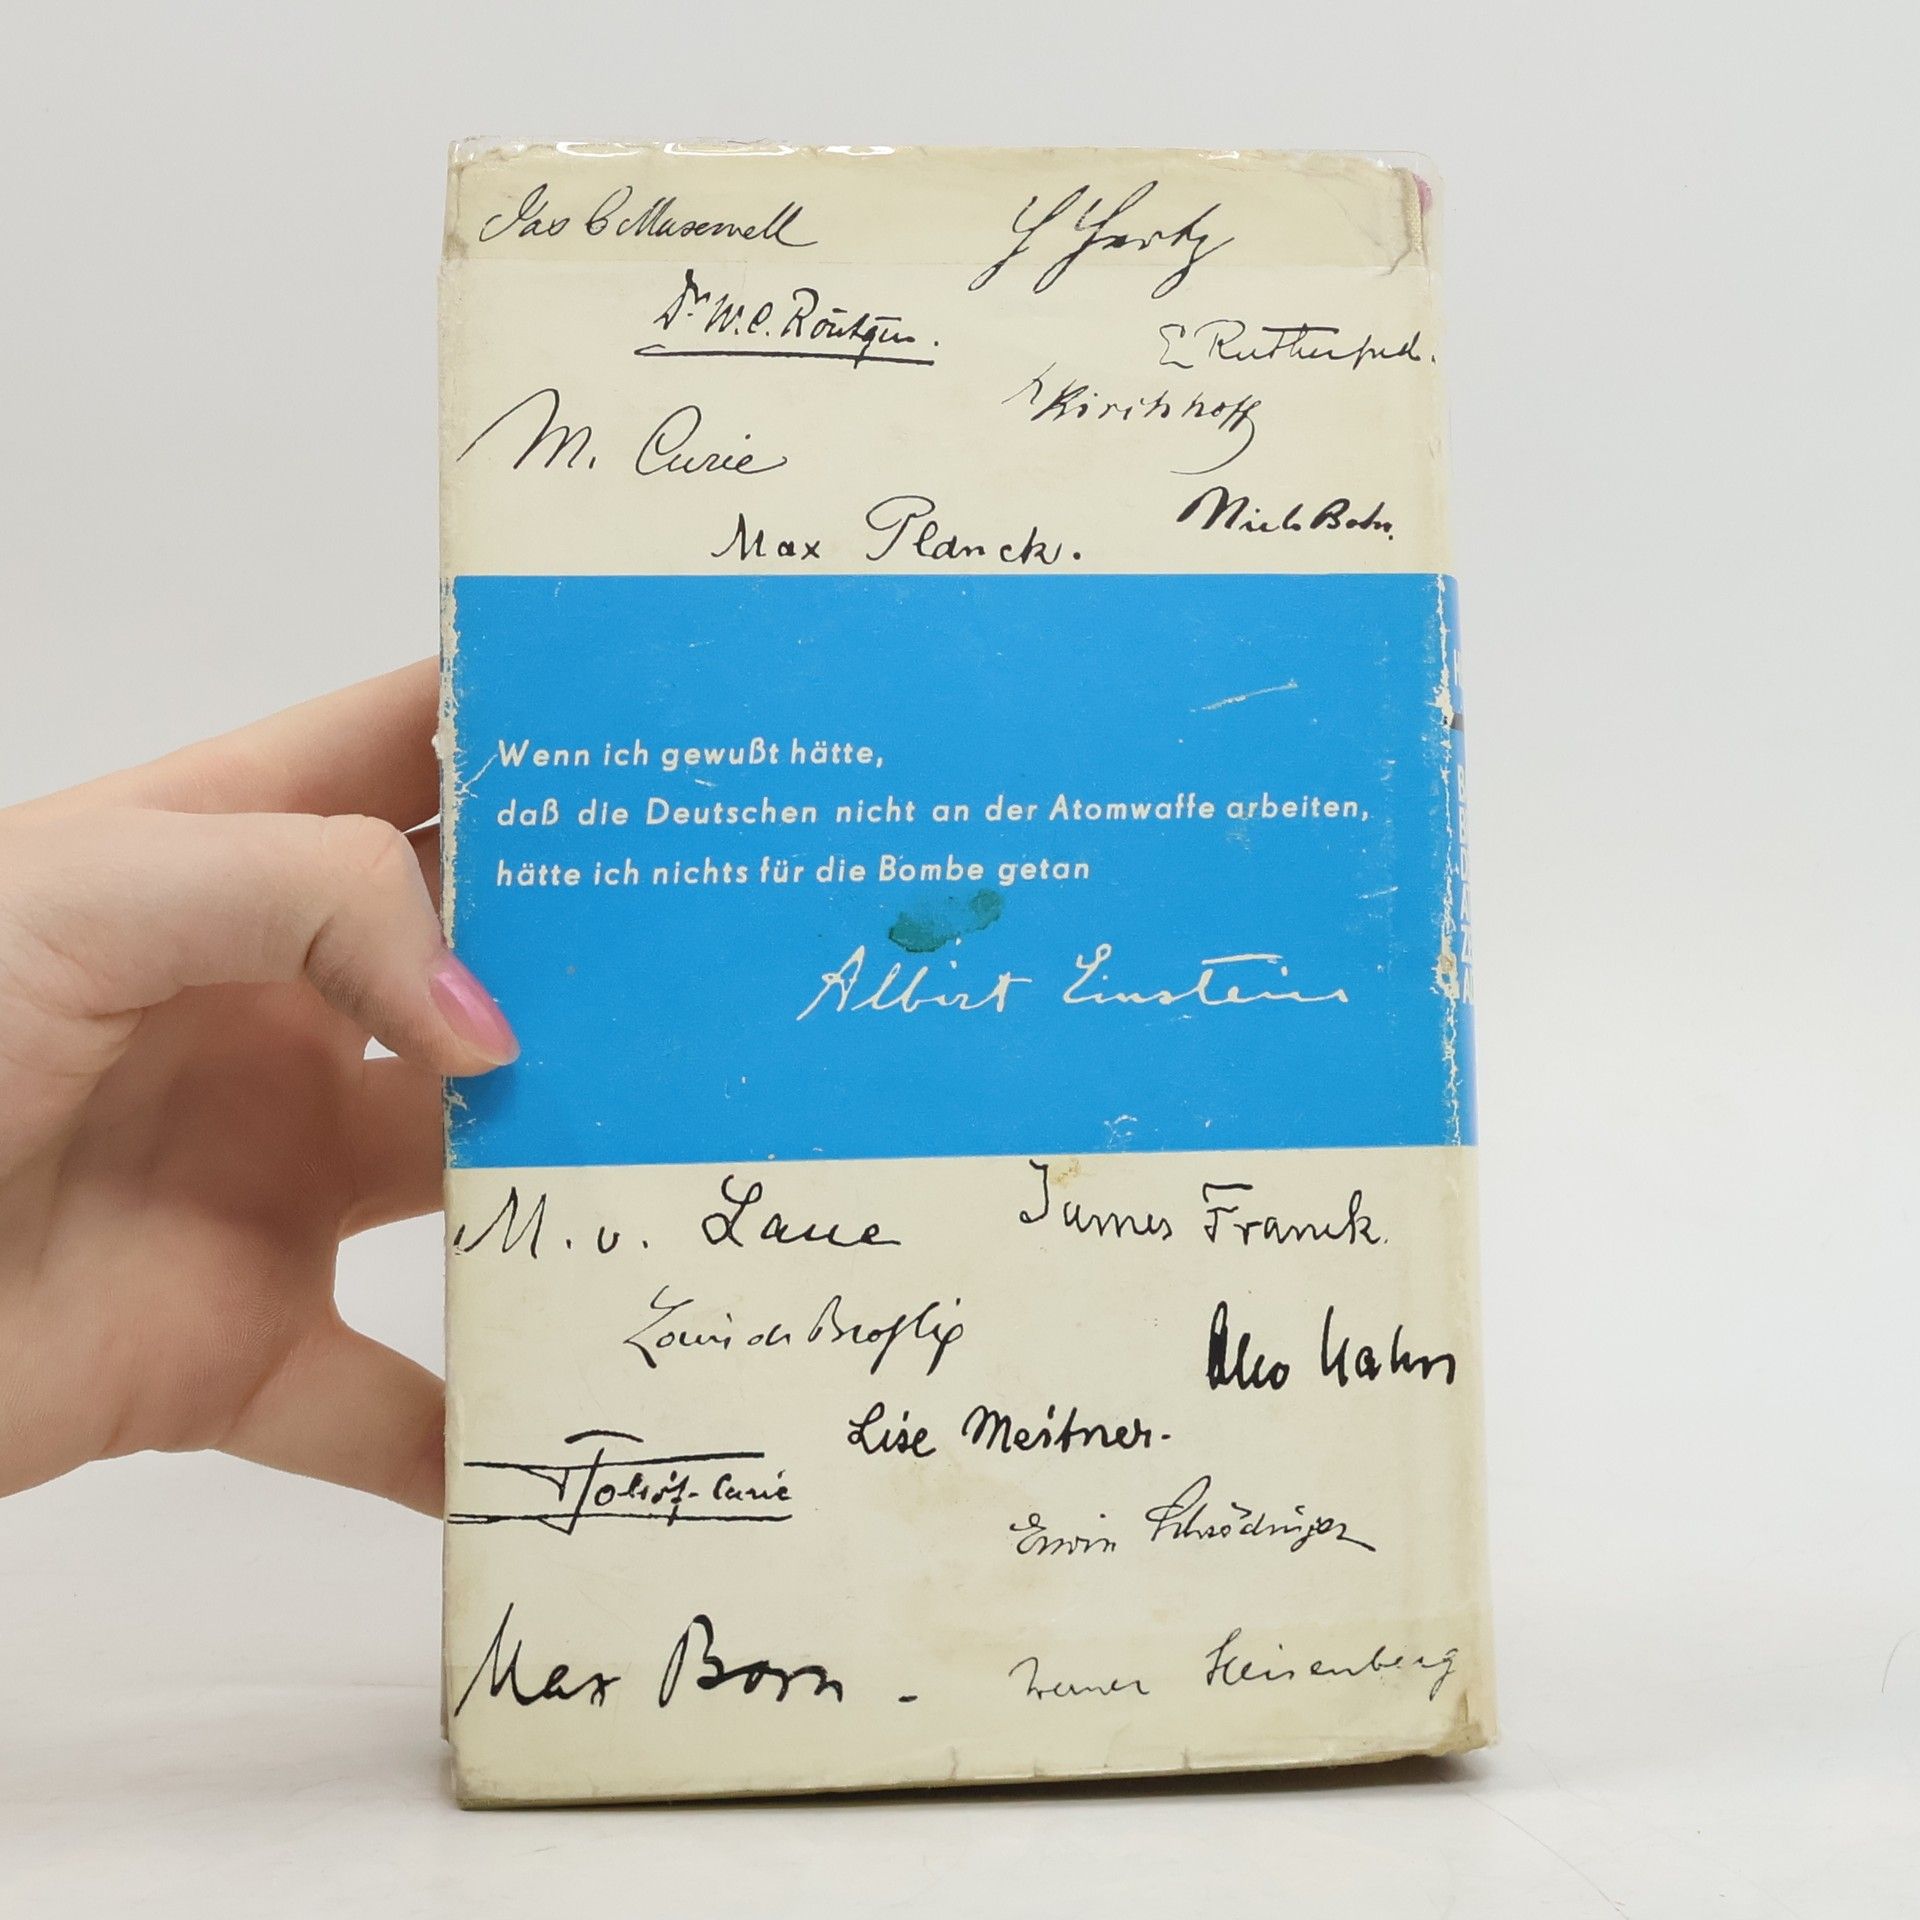 Jas C Maxwell
H Hertz
Dr W. C. Röntgen.
E Rutherford.
Kirchhoff
M. Curie
Niels Bohr.
Max Planck.
Wenn ich gewußt hätte,
daß die Deutschen nicht an der Atomwaffe arbeiten,
hätte ich nichts für die Bombe getan
Albert Einstein
M. v. Laue
James Franck.
Louis de Broglie
Otto Hahn
Lise Meitner.
Joliot-Curie
Erwin Schrödinger
Max Born
Werner Heisenberg